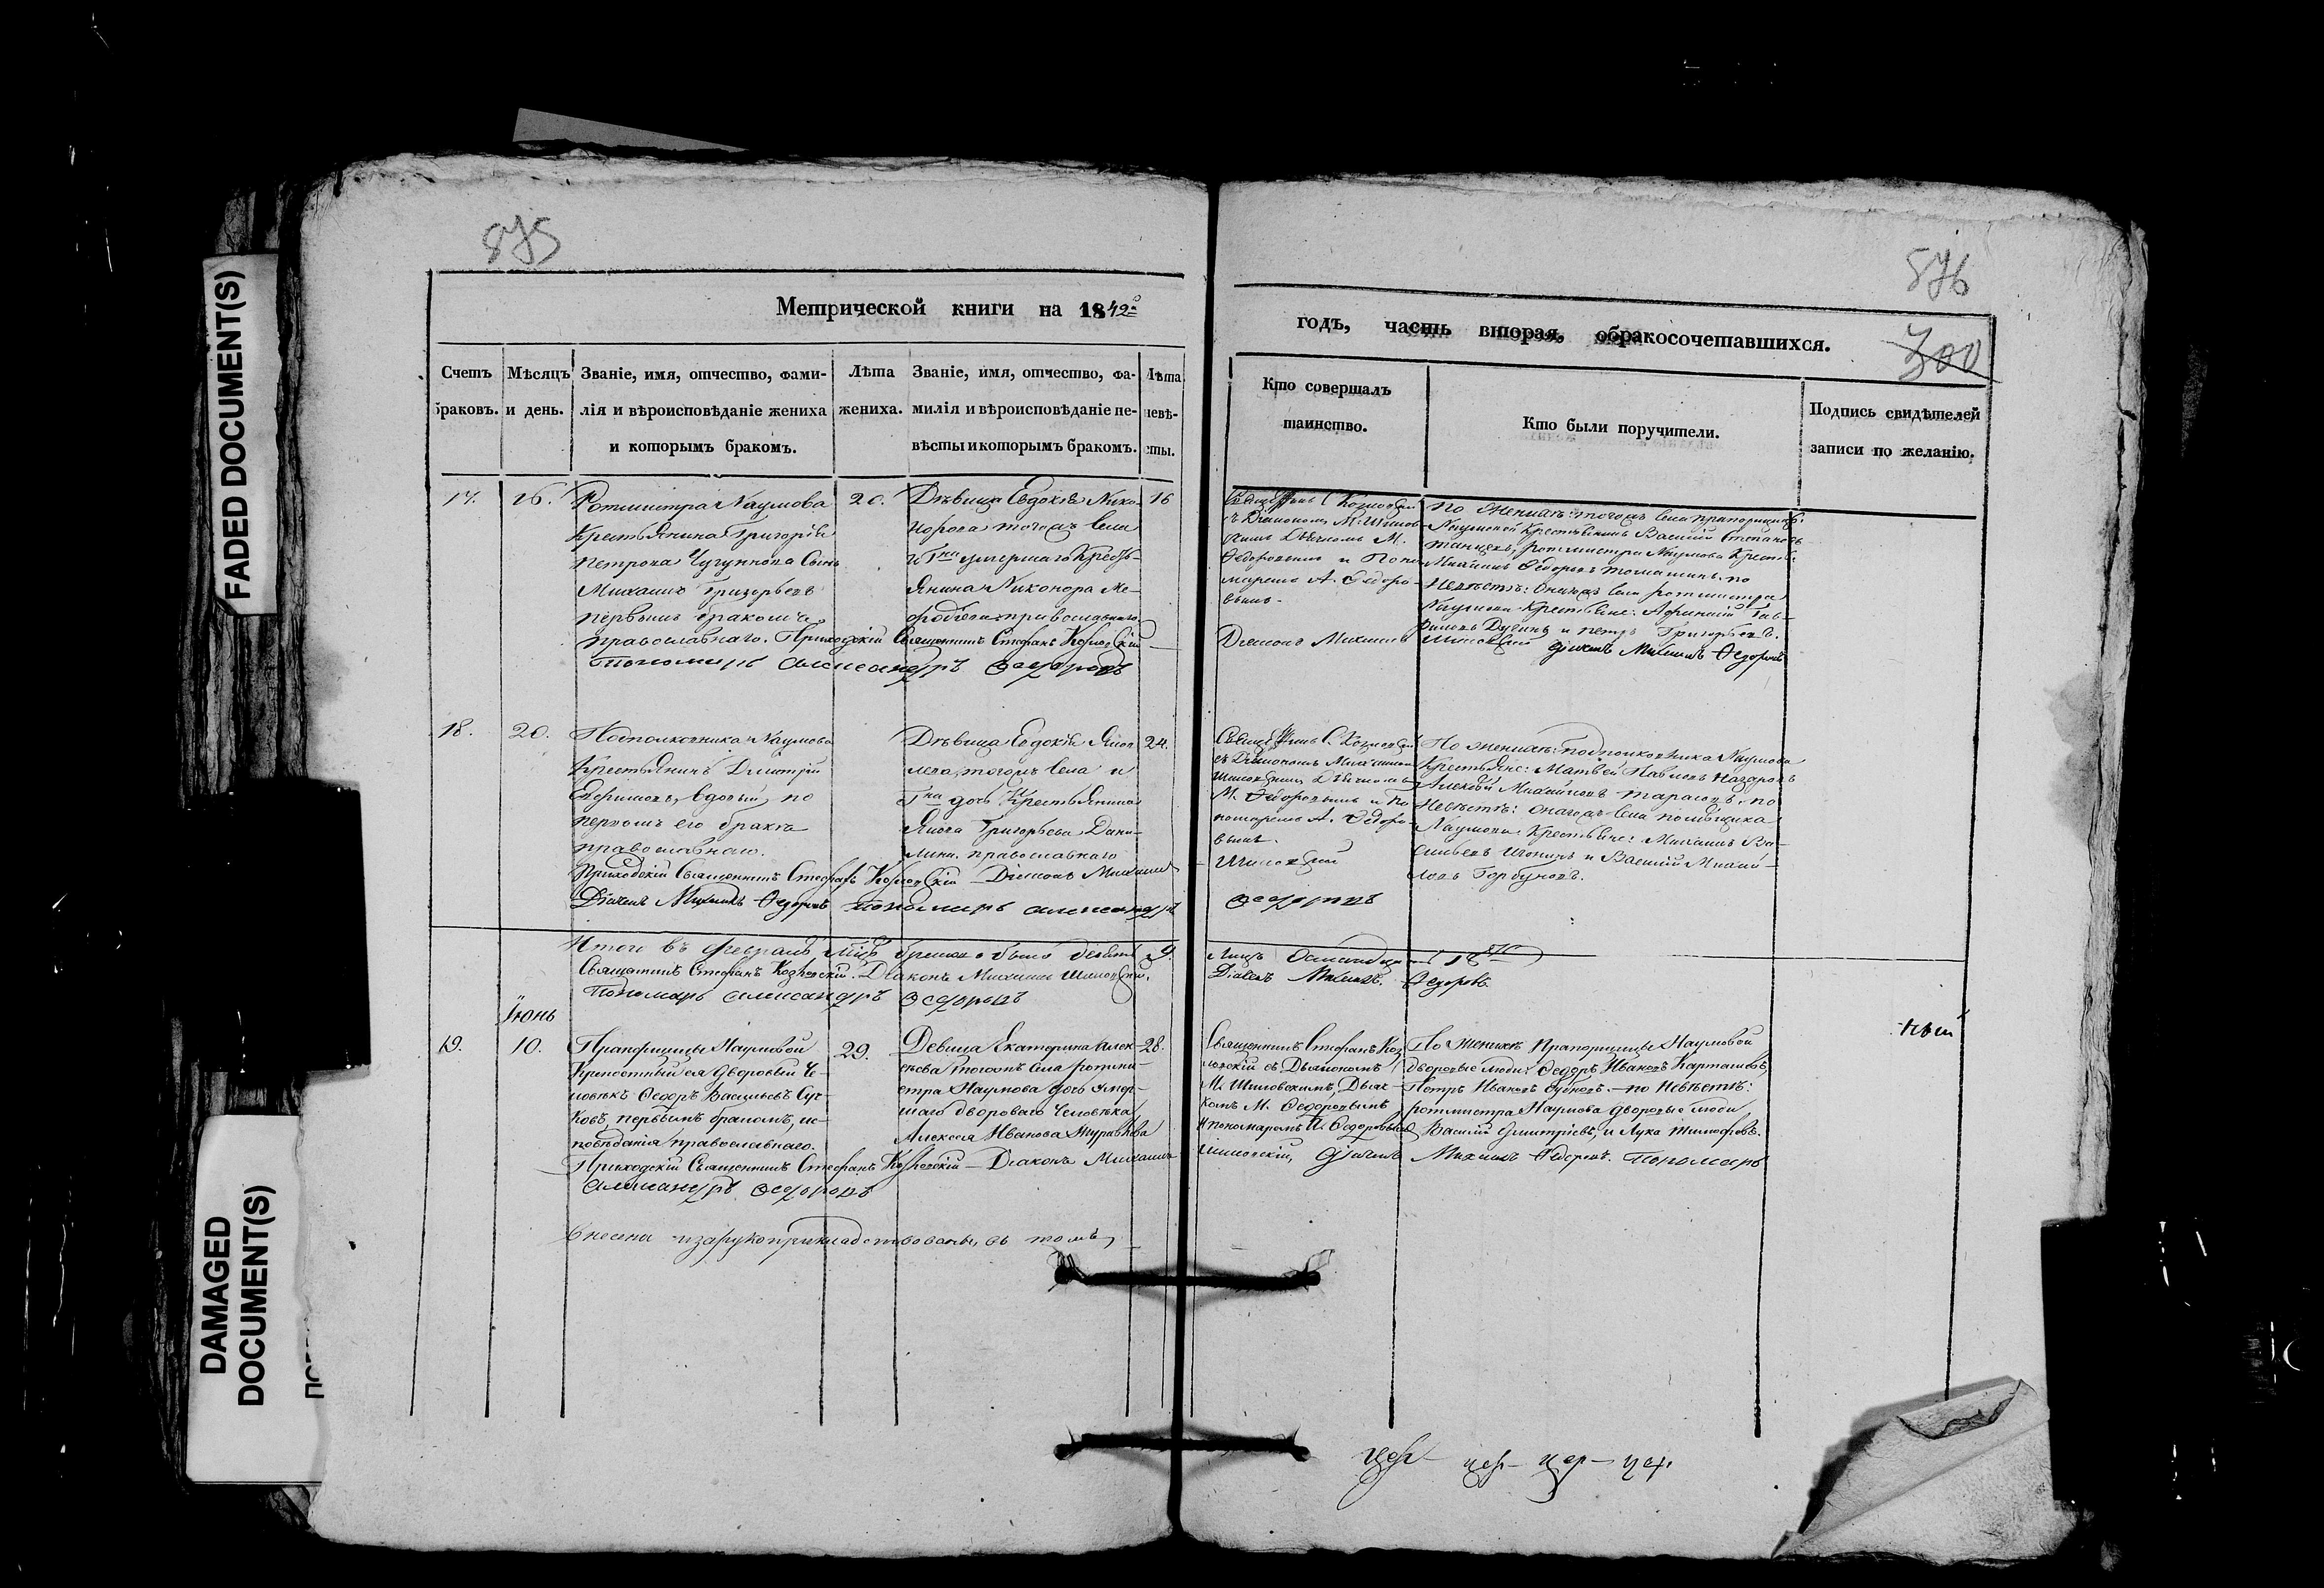 FADED DOCUMENT(S)
DAMAGED
DOCUMENT(S)
875
Метрической книги на 1842
Счетъ браковъ.
Мѣсяцъ и день.
Званіе, имя, отчество, фами-
лія и вѣроисповѣданіе жениха
и которымъ бракомъ.
Лѣта
жениха.
Званіе, имя, отчество, фа-
милія и вѣроисповѣданіе не-
вѣсты и которымъ бракомъ.
Лѣта
невѣ-
сты.
17. 26.
Ротмистра Наумова
Крестьянина Григорія
Петрова Чугункова Сынъ
Михаилъ Григорьевъ
первымъ бракомъ
православнаго. Приходскій Священникъ Стефанъ Козловскій
Пономарь Александръ Ѳедоровъ
20.
Дѣвица Евдокія Никано-
норова тогожъ села
и Гна умершаго Кресть-
янина Никонора Ме-
православнаго
16
18. 20.
Подполковника Наумова
Крестьянинъ Димитрій
Ефимовъ, вдовый, по
первомъ его бракѣ
православнаго.
Приходскій Священникъ Стефанъ Козловскій – Діаконъ Михаилъ
Дьячекъ Михаилъ Ѳедоровъ Пономарь Александръ
Дѣвица Евдокія
тогожъ села и
Гна дочь Крестьянина
Григорьева Дани-
православнаго
24.
Итого въ февралѣ м-цѣ браковъ было девять 9.
Священникъ Стефанъ Козловскій. Діаконъ Михаилъ Шиловскій.
Пономарь Александръ Ѳедоровъ
Іюнь
19. 10.
Прапорщицы Наумовой
Крепостный ея дворовый Че-
ловѣкъ Ѳедоръ Васильевъ Суч-
ковъ, первымъ бракомъ, ис-
повѣданія православнаго.
Приходскій Священникъ Стефанъ Козловскій – Діаконъ Михаилъ
Александръ Ѳедоровъ
29.
Девица Екатерина Алек-
сѣева тогожъ села ротми-
стра Наумова дочь умер-
шаго двороваго Человѣка
Алексея Иванова Журавлева
28.
876
300
годъ, часть вторая, о бракосочетавшихся.
Кто совершалъ
таинство.
Кто были поручители.
Подпись свидѣтелей
записи по желанію.
съ Діакономъ М. Шилов-
скимъ Дьячкомъ М.
Ѳедоровымъ и Поно
маремъ А. Ѳедоро-
вымъ.
По Женихѣ: тогожъ села прапорщицы
Наумовой Крестьянинъ Василій Степановъ
ротмистра Наумова Кресть:
Михаилъ Ѳедоровъ Томашинъ. по
Невѣстѣ: онагожъ села ротмистра
Наумова Крестьяне: Гав-
риловъ и Петръ Григорьевъ.
Діаконъ Михаилъ Шиловскій Дьячекъ Михаилъ Ѳедоровъ
съ Діакономъ Михаиломъ
Шиловскимъ Дьячкомъ
М. Ѳедоровымъ и По
номаремъ А. Ѳедоро-
вымъ.
Шиловскій
Ѳедоровъ
По женихѣ: подполковника Наумова
Крестьяне: Матвей Павловъ Назаровъ
Алексѣй Михайловъ Тарасовъ, по
Невѣстѣ: онагожъ села помѣщика
Наумова Крестьяне: Михаилъ Ва-
сильевъ и Василій Михай-
ловъ Горбуновъ.
Лицъ Осмнадцать 18
Дьячекъ Михаилъ Ѳедоровъ.
Священникъ Стефанъ Коз-
ловскій съ Дьякономъ
М. Шиловскимъ, Дьяч-
комъ М. Ѳедоровымъ
и пономаремъ А. Ѳедоровымъ
По Женихѣ Прапорщицы Наумовой
дворовые люди: Ѳедоръ Ивановъ Карташевъ,
Петръ Ивановъ – по Невѣстѣ:
ротмистра Наумова дворовые люди
Василій Дмитріевъ, и Лука Тимофѣевъ.
Шиловскій, Дьячекъ Михаилъ Ѳедоровъ. Пономарь
цер – цер – цер – цер.